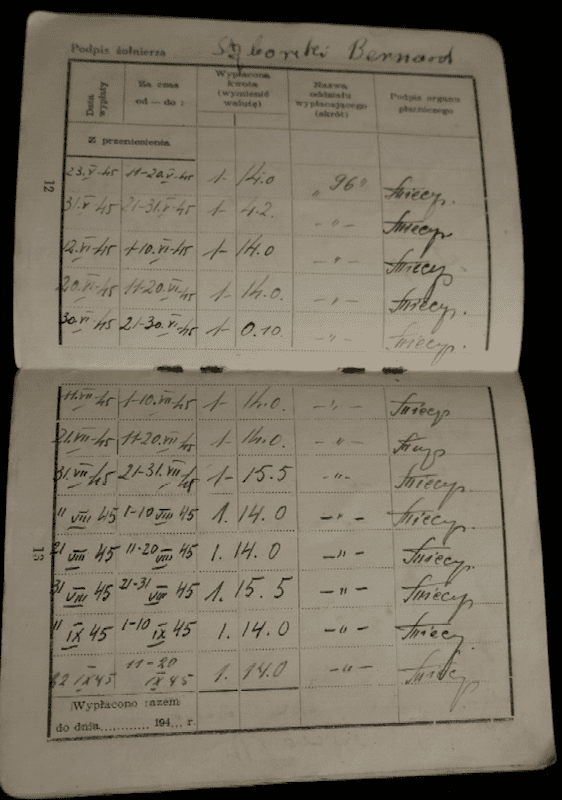 Podpis żołnierza Bernard
Data wypłaty | Za czas od — do : | Wypłacona kwota (wymienić walutę) | Nazwa oddziału wypłacającego (skrót) | Podpis organu płatniczego
Z przeniesienia
23.V-45 11-20.V-45 1- 14.0 „96”
31.V 45 21-31.V-45 1- 4.2. - " -
12.VI-45 1-10.VI-45 1- 14.0 - " -
20.VI-45 11-20.VI-45 1- 14.0. - " -
30.VI-45 21-30.VI-45 1- 0.10 - " -
12
11.VII-45 1-10.VII-45 1- 14.0. - " -
21.VII-45 11-20.VII-45 1- 14.0. - " -
31.VII 45 21-31.VII 45 1- 15.5 - " -
11 VIII 45 1-10 VIII 45 1. 14.0 - " -
21 VIII 45 11-20 VIII 45 1. 14.0 - " -
31 VIII 45 21-31 VIII 45 1. 15.5 - " -
11 IX 45 1-10 IX 45 1. 14.0 - " -
22 IX 45 11-20 IX 45 1. 14.0 - " -
13
Wypłacono razem
do dnia............ 194.... r.